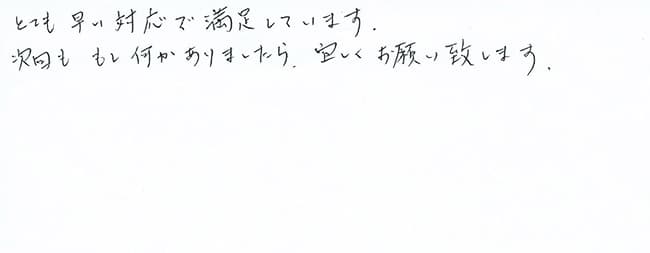 とても早い対応で満足しています.
次回も もし何かありましたら. 宜しくお願い致します.